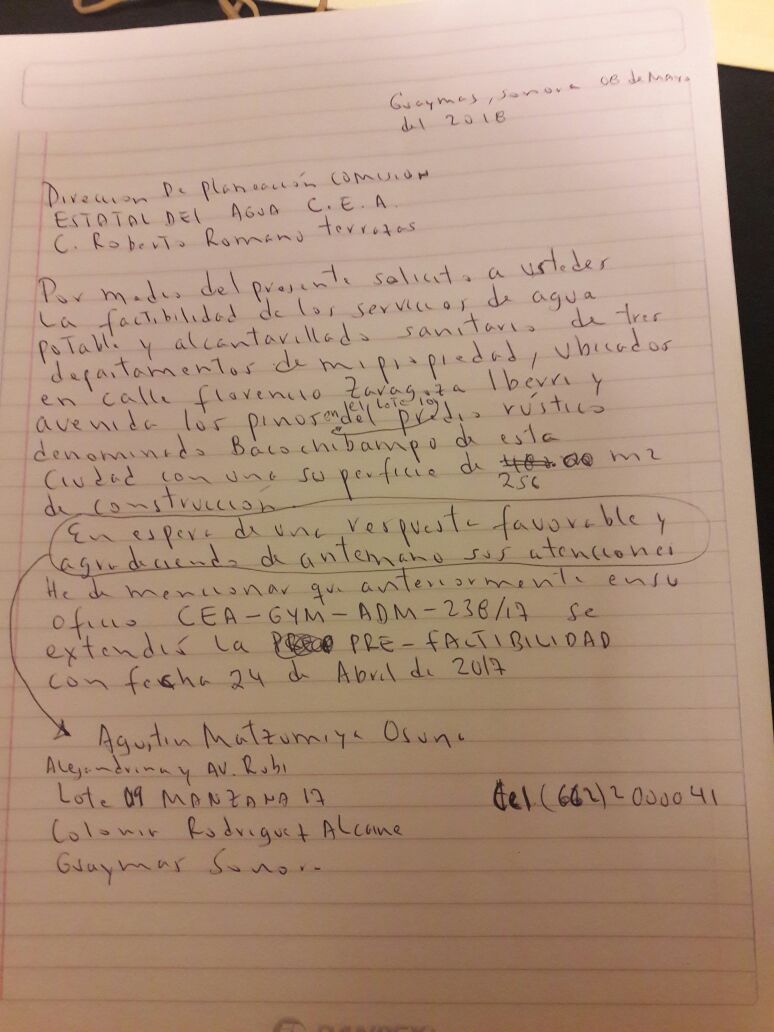 Guaymas, sonora 08 de Mayo
del 2018
Direccion De planeación COMISION
ESTATAL DEL AGUA C.E.A.
C. Roberto Romano terrazas
Por medio del presente solicito a ustedes
La factibilidad de los servicios de agua
potable y alcantarillado sanitario de tres
departamentos de mi propiedad, ubicados
en calle florencio Zaragoza Iberri y
el Lote 109
avenida los pinos en del predio rústico
denominado Bacochibampo de esta
Ciudad con una superficie de m2
256
de construcción.
En espera de una respuesta favorable y
agradeciendo de antemano sus atenciones
He de mencionar que anteriormente en su
oficio CEA-GYM-ADM-238/17 se
extendió la PRE-FACTIBILIDAD
con fecha 24 de Abril de 2017
Agustin Matzumiya Osuna
Alejandrina y AV. Rubi
Lote 09 MANZANA 17 tel (662) 2000041
Colonia Rodriguez Alcaine
Guaymas Sonora